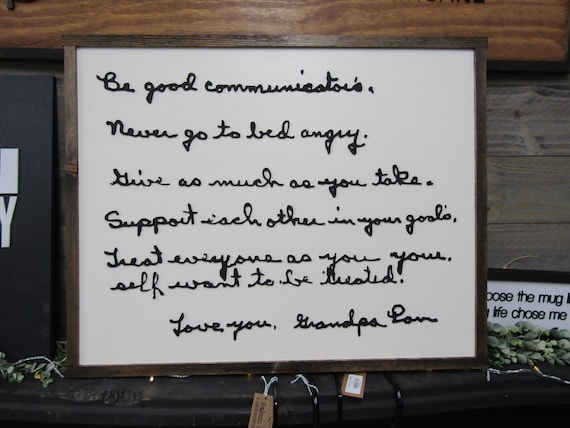 Be good communicator's.
Never go to bed angry.
Give as much as you take.
Support each other in your goal's.
Treat everyone as you your.
self want to be treated.
Love you, Grandpa Ron
oose the mug li
life chose me